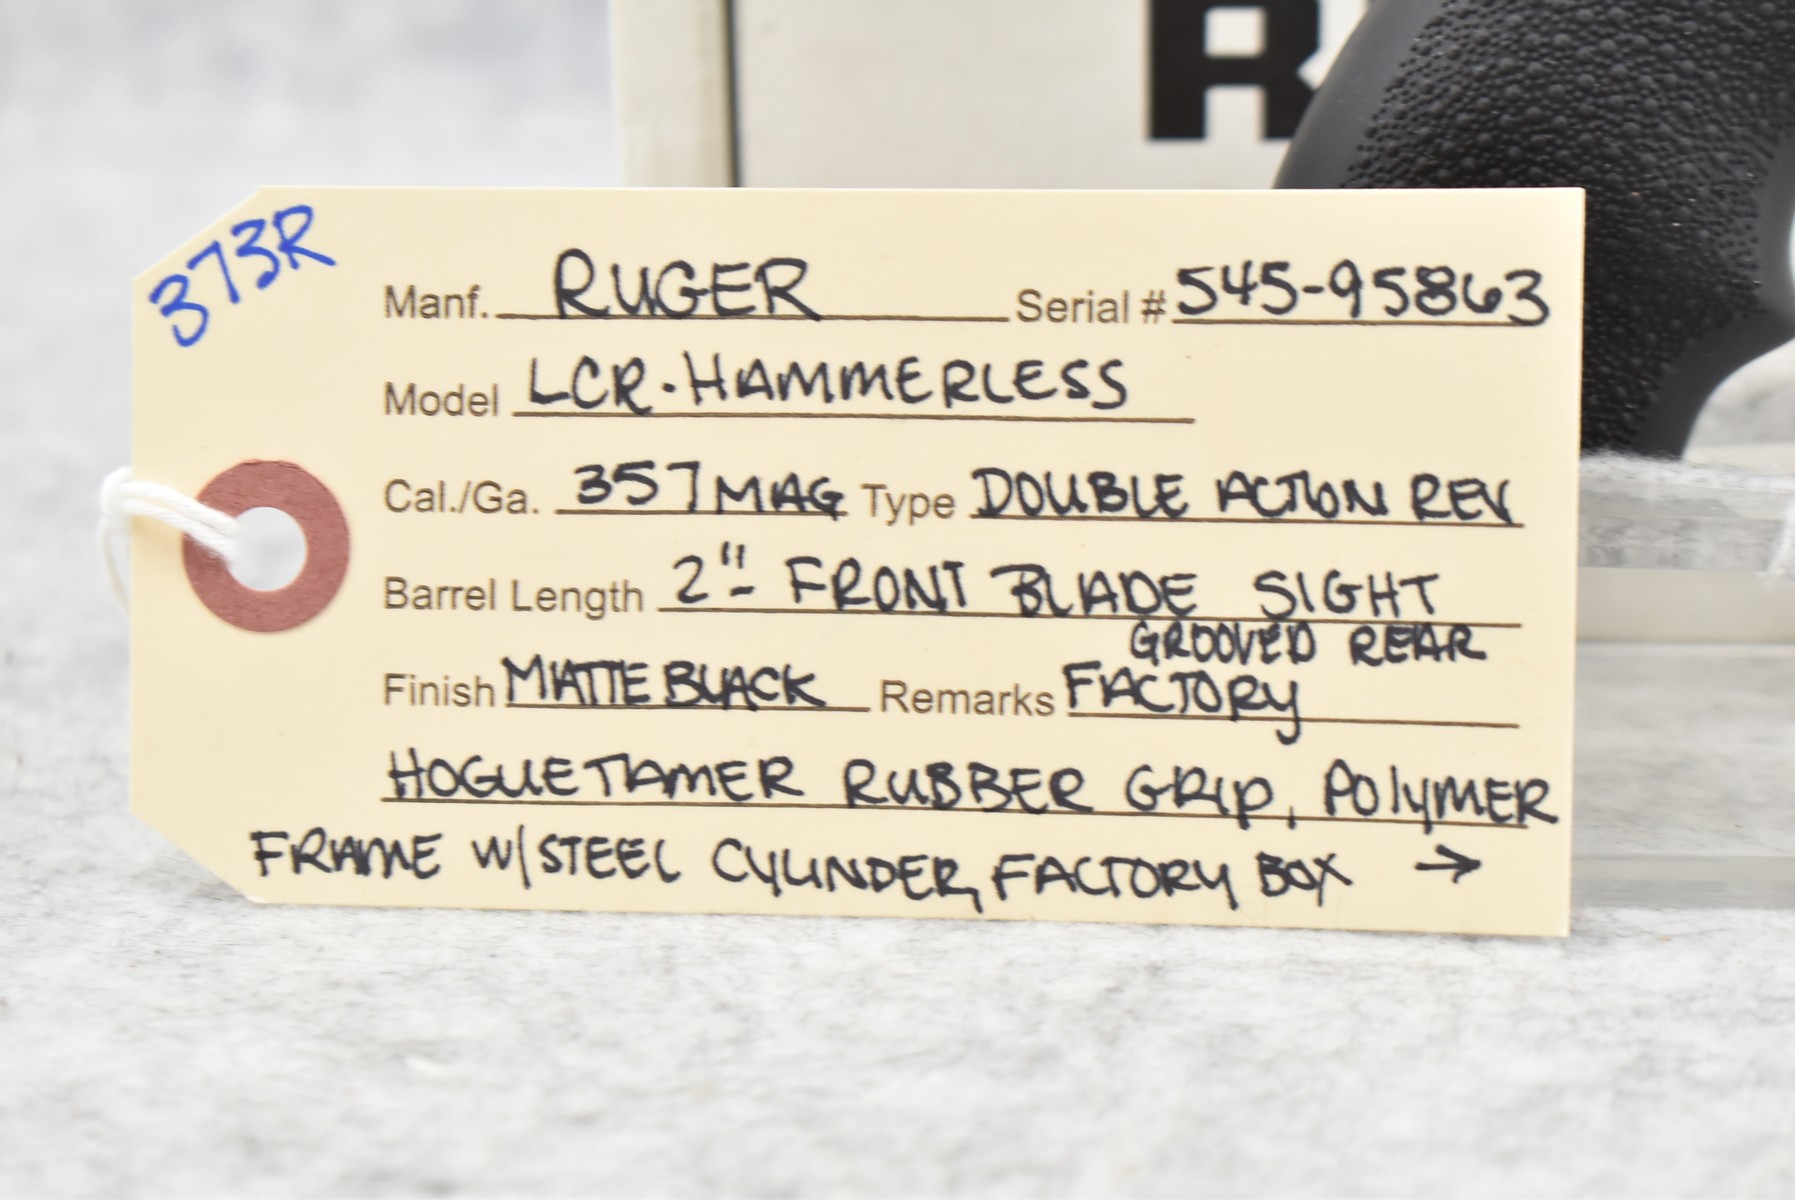 R
373R
Manf. RUGER Serial # 545-95863
Model LCR-HAMMERLESS
Cal./Ga. 357 MAG Type DOUBLE ACTION REV
Barrel Length 2"- FRONT BLADE SIGHT
GROOVED REAR
Finish MATTE BLACK Remarks FACTORY
HOGUE TAMER RUBBER GRIP, POLYMER
FRAME W/STEEL CYLINDER, FACTORY BOX →